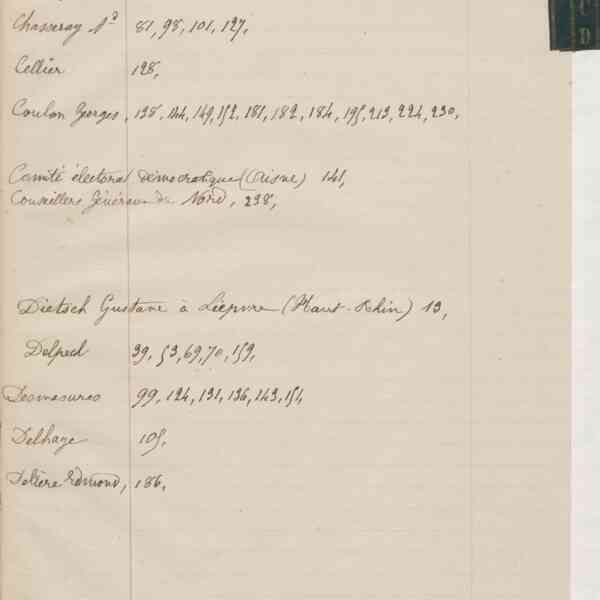 C
D
Chasseray 81, 98, 101, 127,
Cellier 128,
Coulon Georges, 138, 144, 149, 152, 181, 182, 184, 195, 213, 224, 230,
Comité électoral démocratique (Aisne) 141,
Conseillers Généraux du Nord, 238,
Dietsch Gustave à Lièpvre (Haut-Rhin) 13,
Delpech 39, 53, 69, 70, 159,
Desmasures 99, 124, 131, 136, 143, 151,
Delhaye 105,
Edmond, 186,